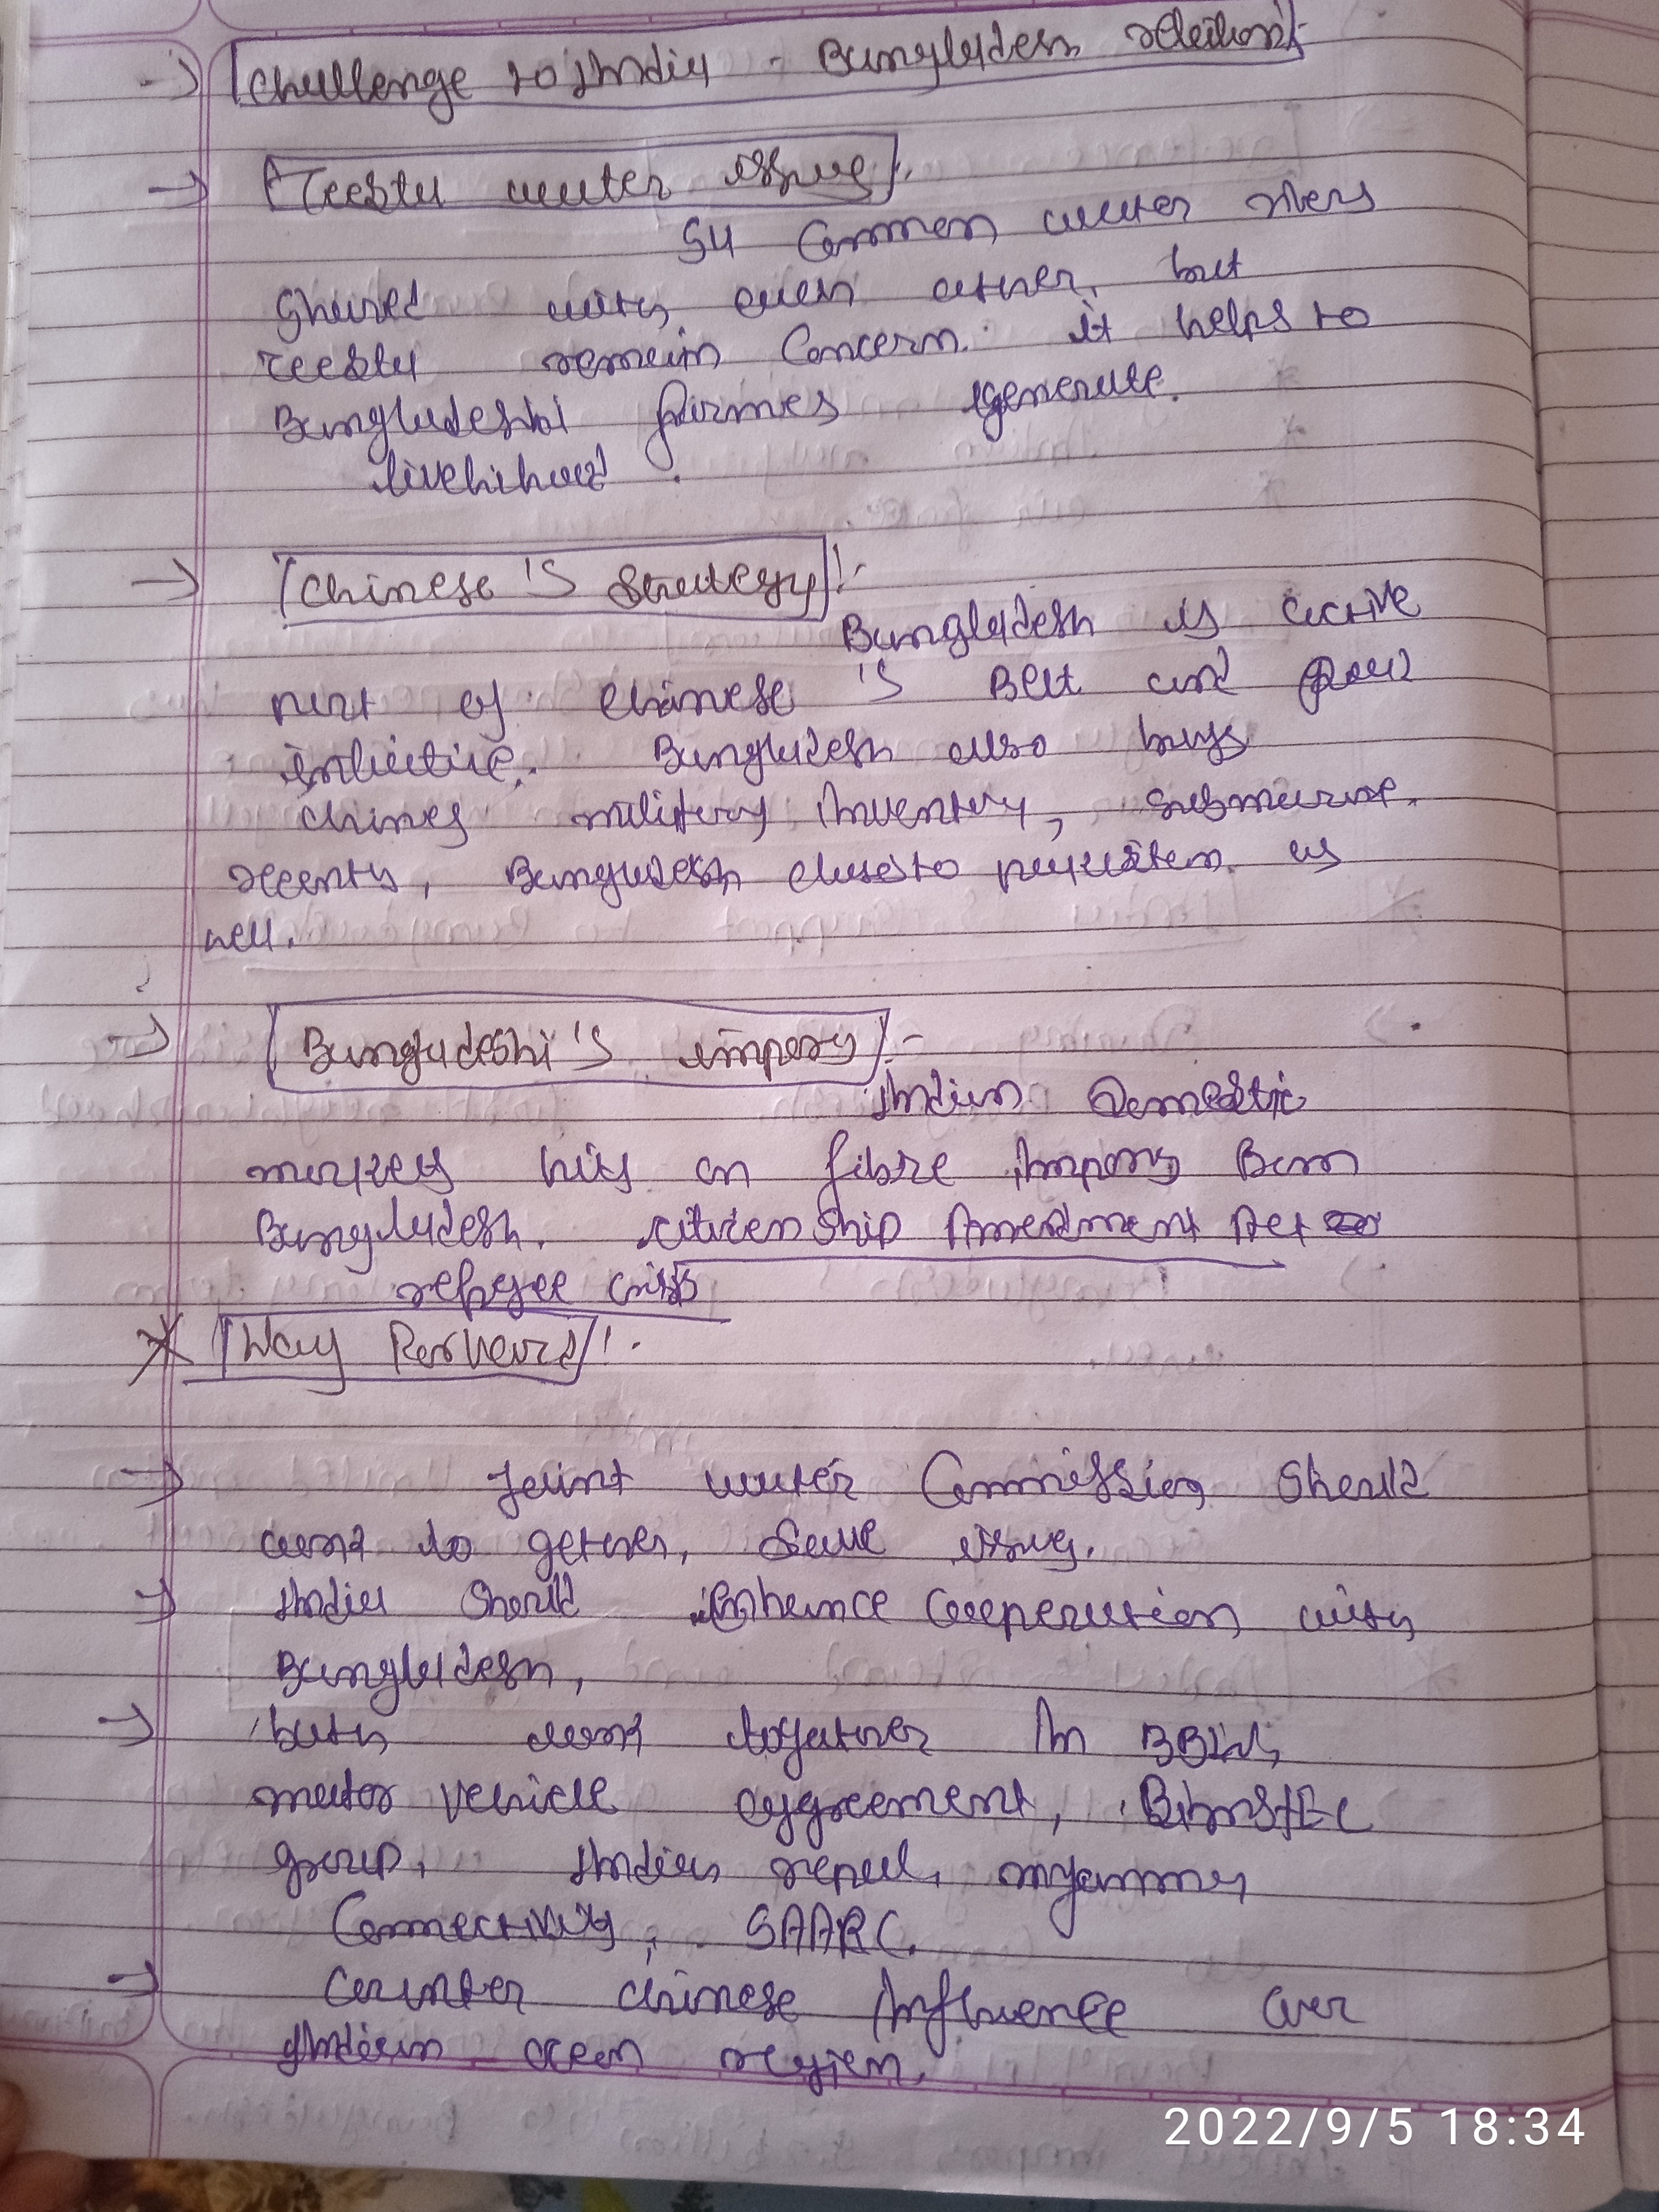 Challenge to India - Bangladesh relation :-
Teesta water issue :-
54 Common water rivers
Shared with each other, but
teesta remain Concern. it helps to
Bangladeshi farmes generate
livelihood.
Chinese's Strategy :-
Bangladesh is active
part of Chinese's Belt and Road
initiative. Bangladesh also buys
chines military inventory, submarine.
recently, Bangladesh close to pakistan as
well.
Bangladeshi's import :-
Indian Domestic
market hit on fibre import from
Bangladesh. citizenship Amendment Act
refugee crisis
Way Forward :-
Joint water Commission Should
work to gether, Solve issue.
India Should Enhance Cooperation with
Bangladesh,
both work together in BBIN,
motor vehicle aggreement, BimstEC
group, India, nepal, myanmar
Connectivity, SAARC.
Counter chinese influence over
Indian ocean region.
2022/9/5 18:34